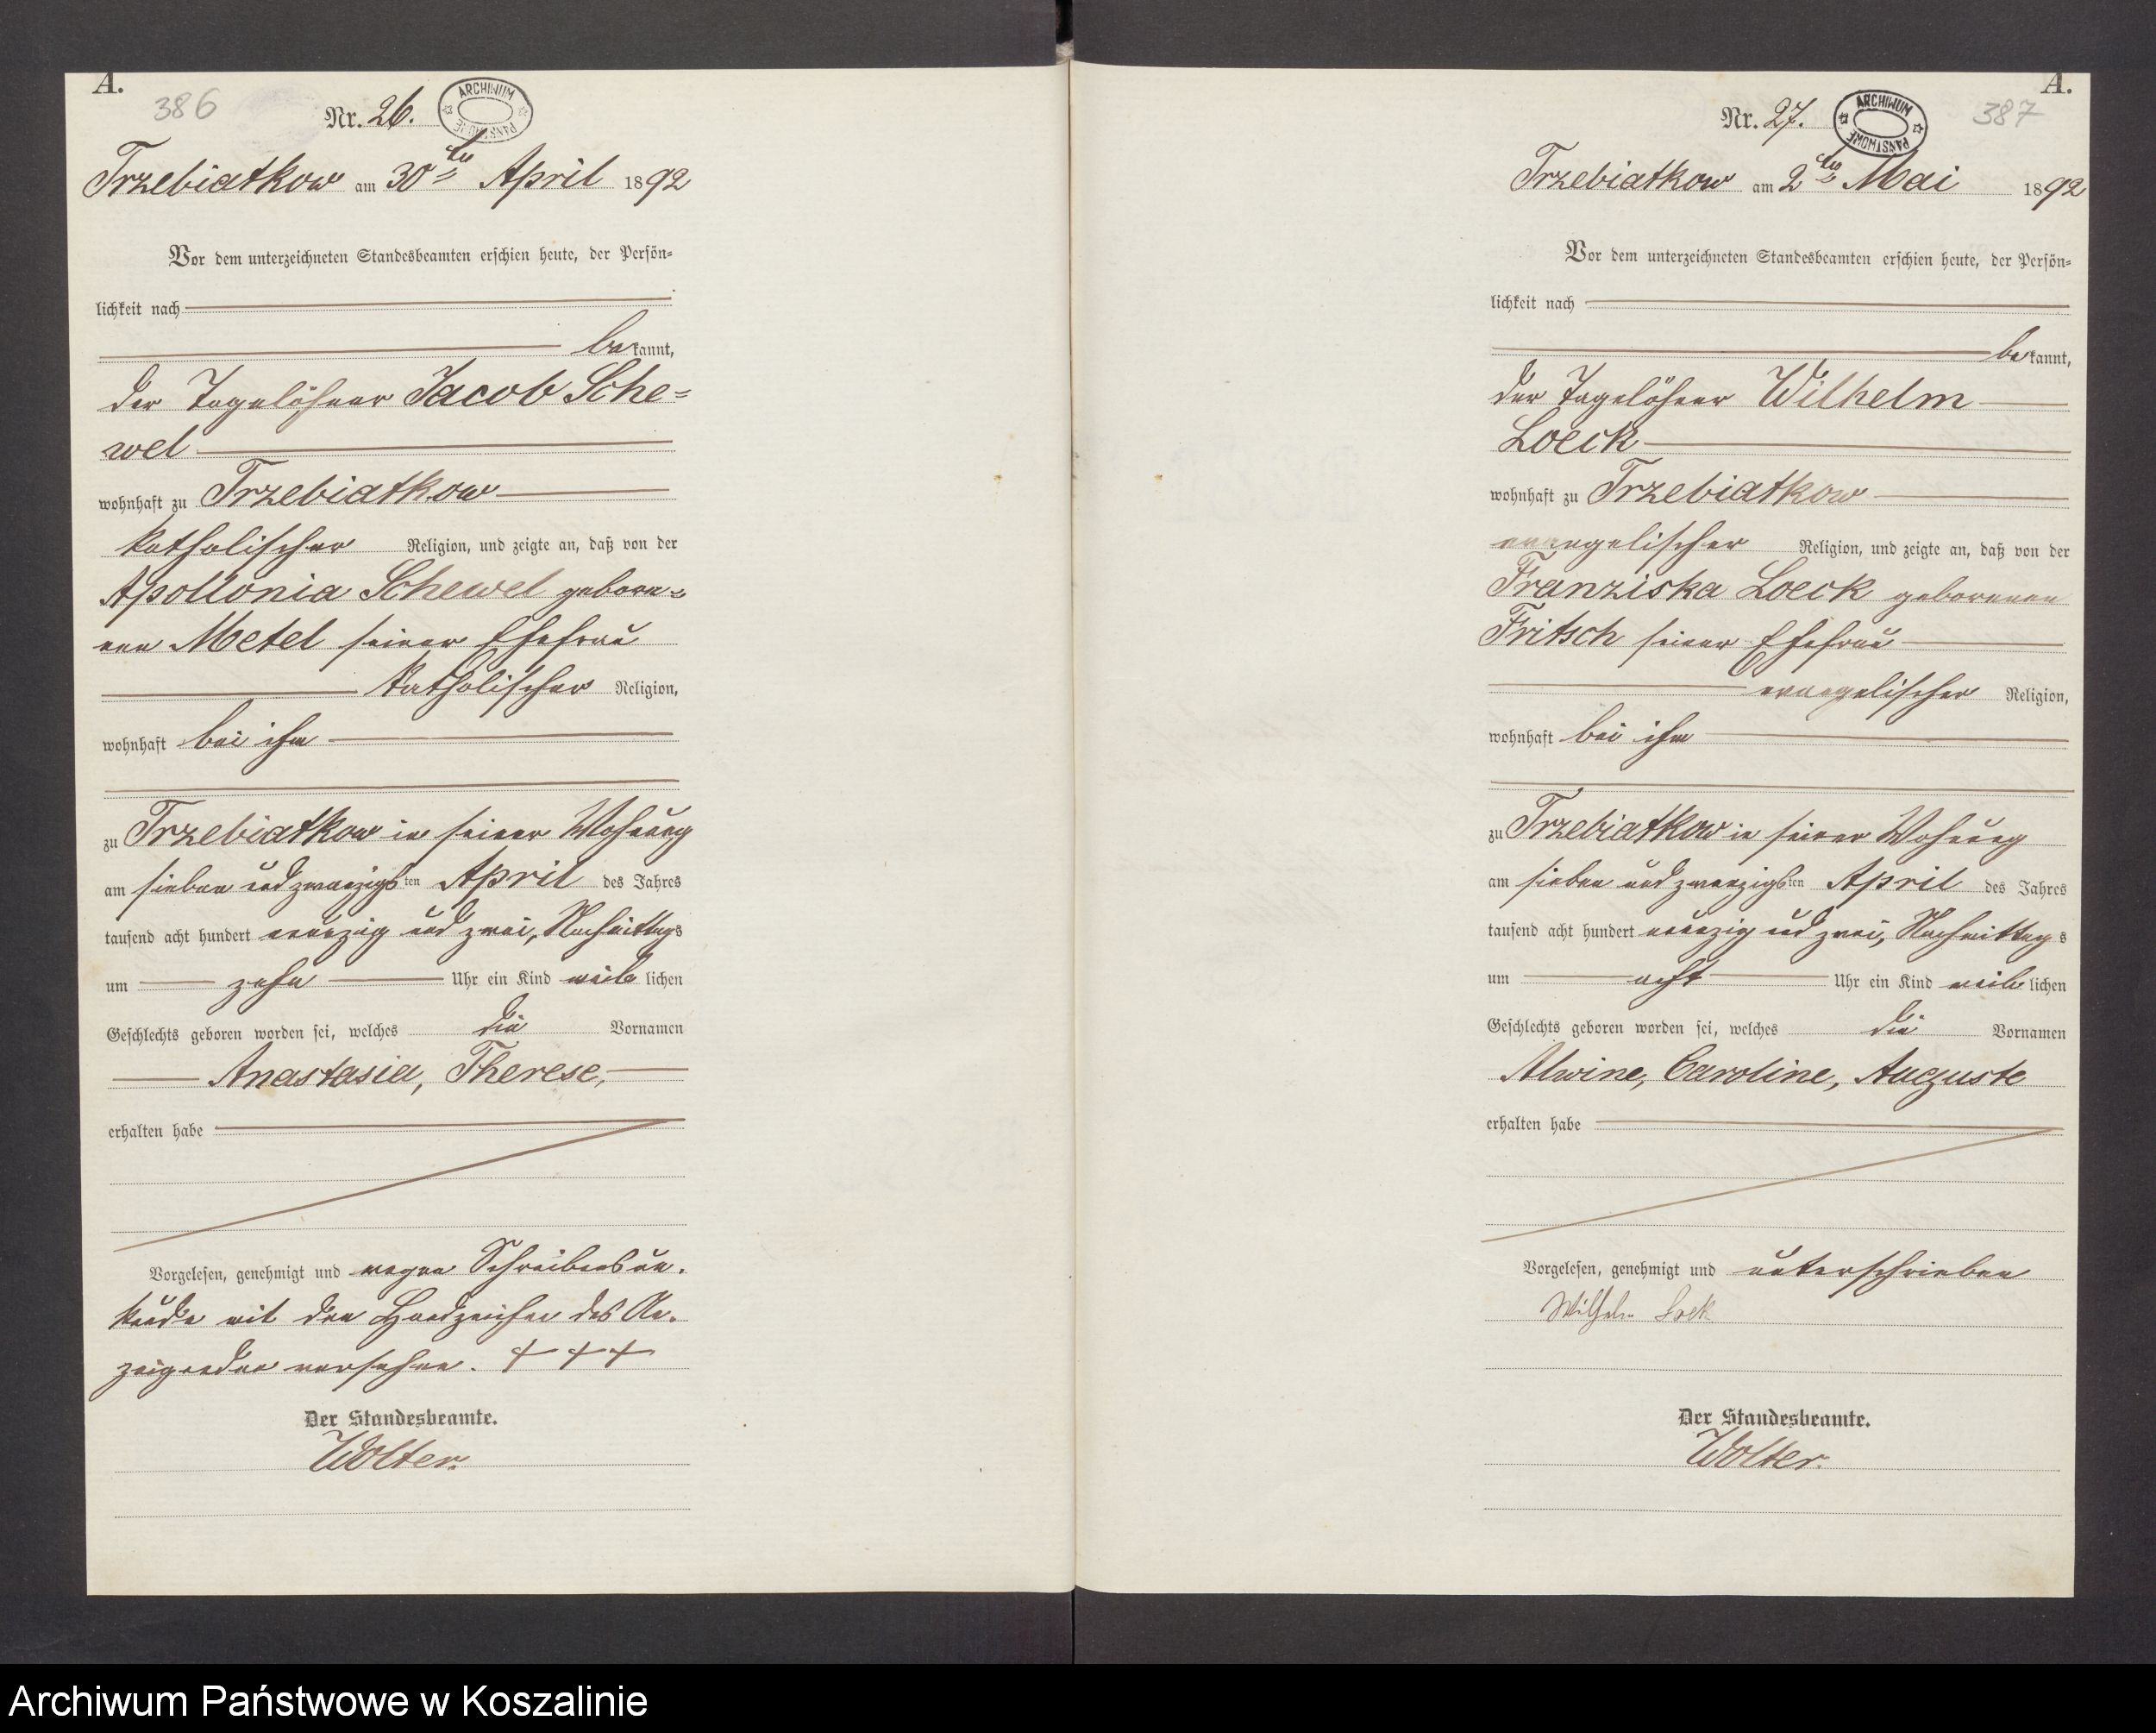 A.
386
Nr. 26.
ARCHIWUM PAŃSTWOWE
Trzebiatkow am 30ten April 1892
Vor dem unterzeichneten Standesbeamten erschien heute, der Persön-
lichkeit nach
bekannt,
der Tagelöhner Jacob Sche-
wel
wohnhaft zu Trzebiatkow
katholischer Religion, und zeigte an, daß von der
Apollonia Schewel gebore-
nen Metel seiner Ehefrau
katholischer Religion,
wohnhaft bei ihm
zu Trzebiatkow in seiner Wohnung
am sieben und zwanzigsten April des Jahres
tausend acht hundert neunzig und zwei, Nachmittags
um zehn Uhr ein Kind weiblichen
Geschlechts geboren worden sei, welches die Vornamen
Anastasia, Therese,
erhalten habe
Vorgelesen, genehmigt und wegen Schreibensun-
kunde mit den Handzeichen des An-
zeigenden versehen. + + +
Der Standesbeamte.
Wolter.
A.
387
Nr. 27.
ARCHIWUM PAŃSTWOWE
Trzebiatkow am 2ten Mai 1892
Vor dem unterzeichneten Standesbeamten erschien heute, der Persön-
lichkeit nach
bekannt,
der Tagelöhner Wilhelm
Loeck
wohnhaft zu Trzebiatkow
evangelischer Religion, und zeigte an, daß von der
Franziska Loeck geborenen
Fritsch seiner Ehefrau
evangelischer Religion,
wohnhaft bei ihm
zu Trzebiatkow in seiner Wohnung
am sieben und zwanzigsten April des Jahres
tausend acht hundert neunzig und zwei, Nachmittags
um acht Uhr ein Kind weiblichen
Geschlechts geboren worden sei, welches die Vornamen
Alwine, Caroline, Auguste
erhalten habe
Vorgelesen, genehmigt und unterschrieben
Wilhelm Loek
Der Standesbeamte.
Wolter.
Archiwum Państwowe w Koszalinie